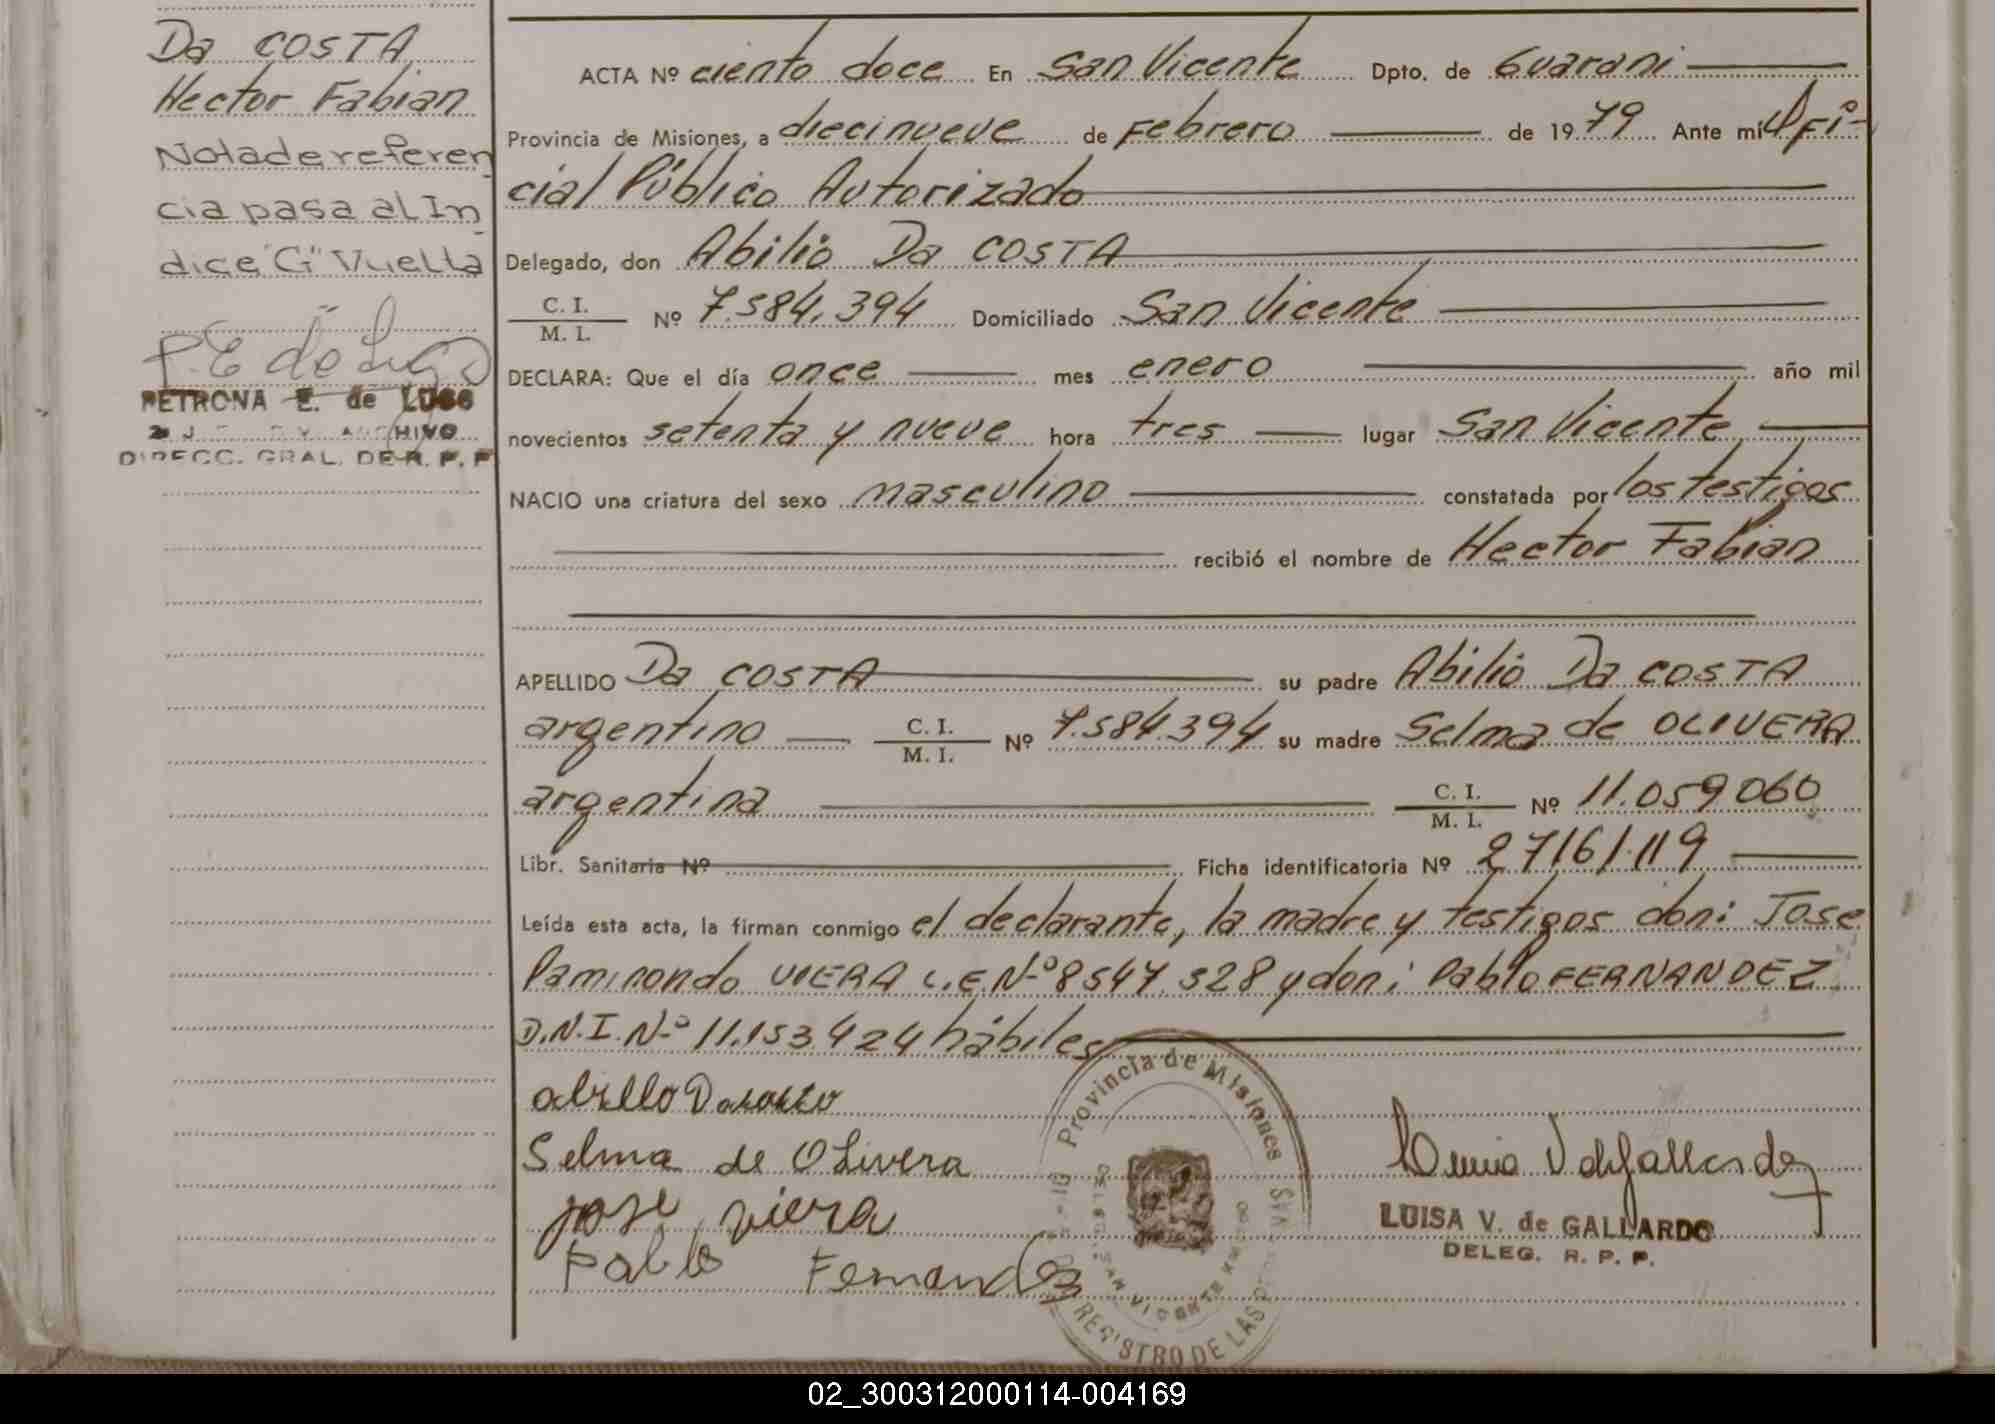 Da COSTA
Hector Fabian
Nota de referen
cia pasa al In
dice "G" Vuelta
P. E de Lugo
PETRONA E. de LUGO
ARCHIVO
DIRECC. GRAL. DE R. P. P
ACTA Nº ciento doce En San Vicente Dpto. de Guarani
Provincia de Misiones, a diecinueve de Febrero de 1979 Ante mí Ofi-
cial Público Autorizado
Delegado, don Abilio Da COSTA
C. I.
M. I. Nº 7.584.394 Domiciliado San Vicente
DECLARA: Que el día once mes enero año mil
novecientos setenta y nueve hora tres lugar San Vicente
NACIO una criatura del sexo masculino constatada por los testigos
recibió el nombre de Hector Fabian
APELLIDO Da COSTA su padre Abilio Da COSTA
argentino C. I.
M. I. Nº 7.584.394 su madre Selma de OLIVERA
argentina C. I.
M. I. Nº 11.059060
Libr. Sanitaria Nº Ficha identificatoria Nº 27161.119
Leída esta acta, la firman conmigo el declarante, la madre y testigos don: Jose
Paminondo VIERA L.E.Nº 8547.328 y don: Pablo FERNANDEZ
D.N.I. Nº 11.153.424 hábiles
Selma de Olivera
jose viera
Pablo Fernandez
Provincia de Misiones
SAN VICENTE
REGISTRO DE LAS
LUISA V. de GALLARDO
DELEG. R. P. P.
02_300312000114-004169